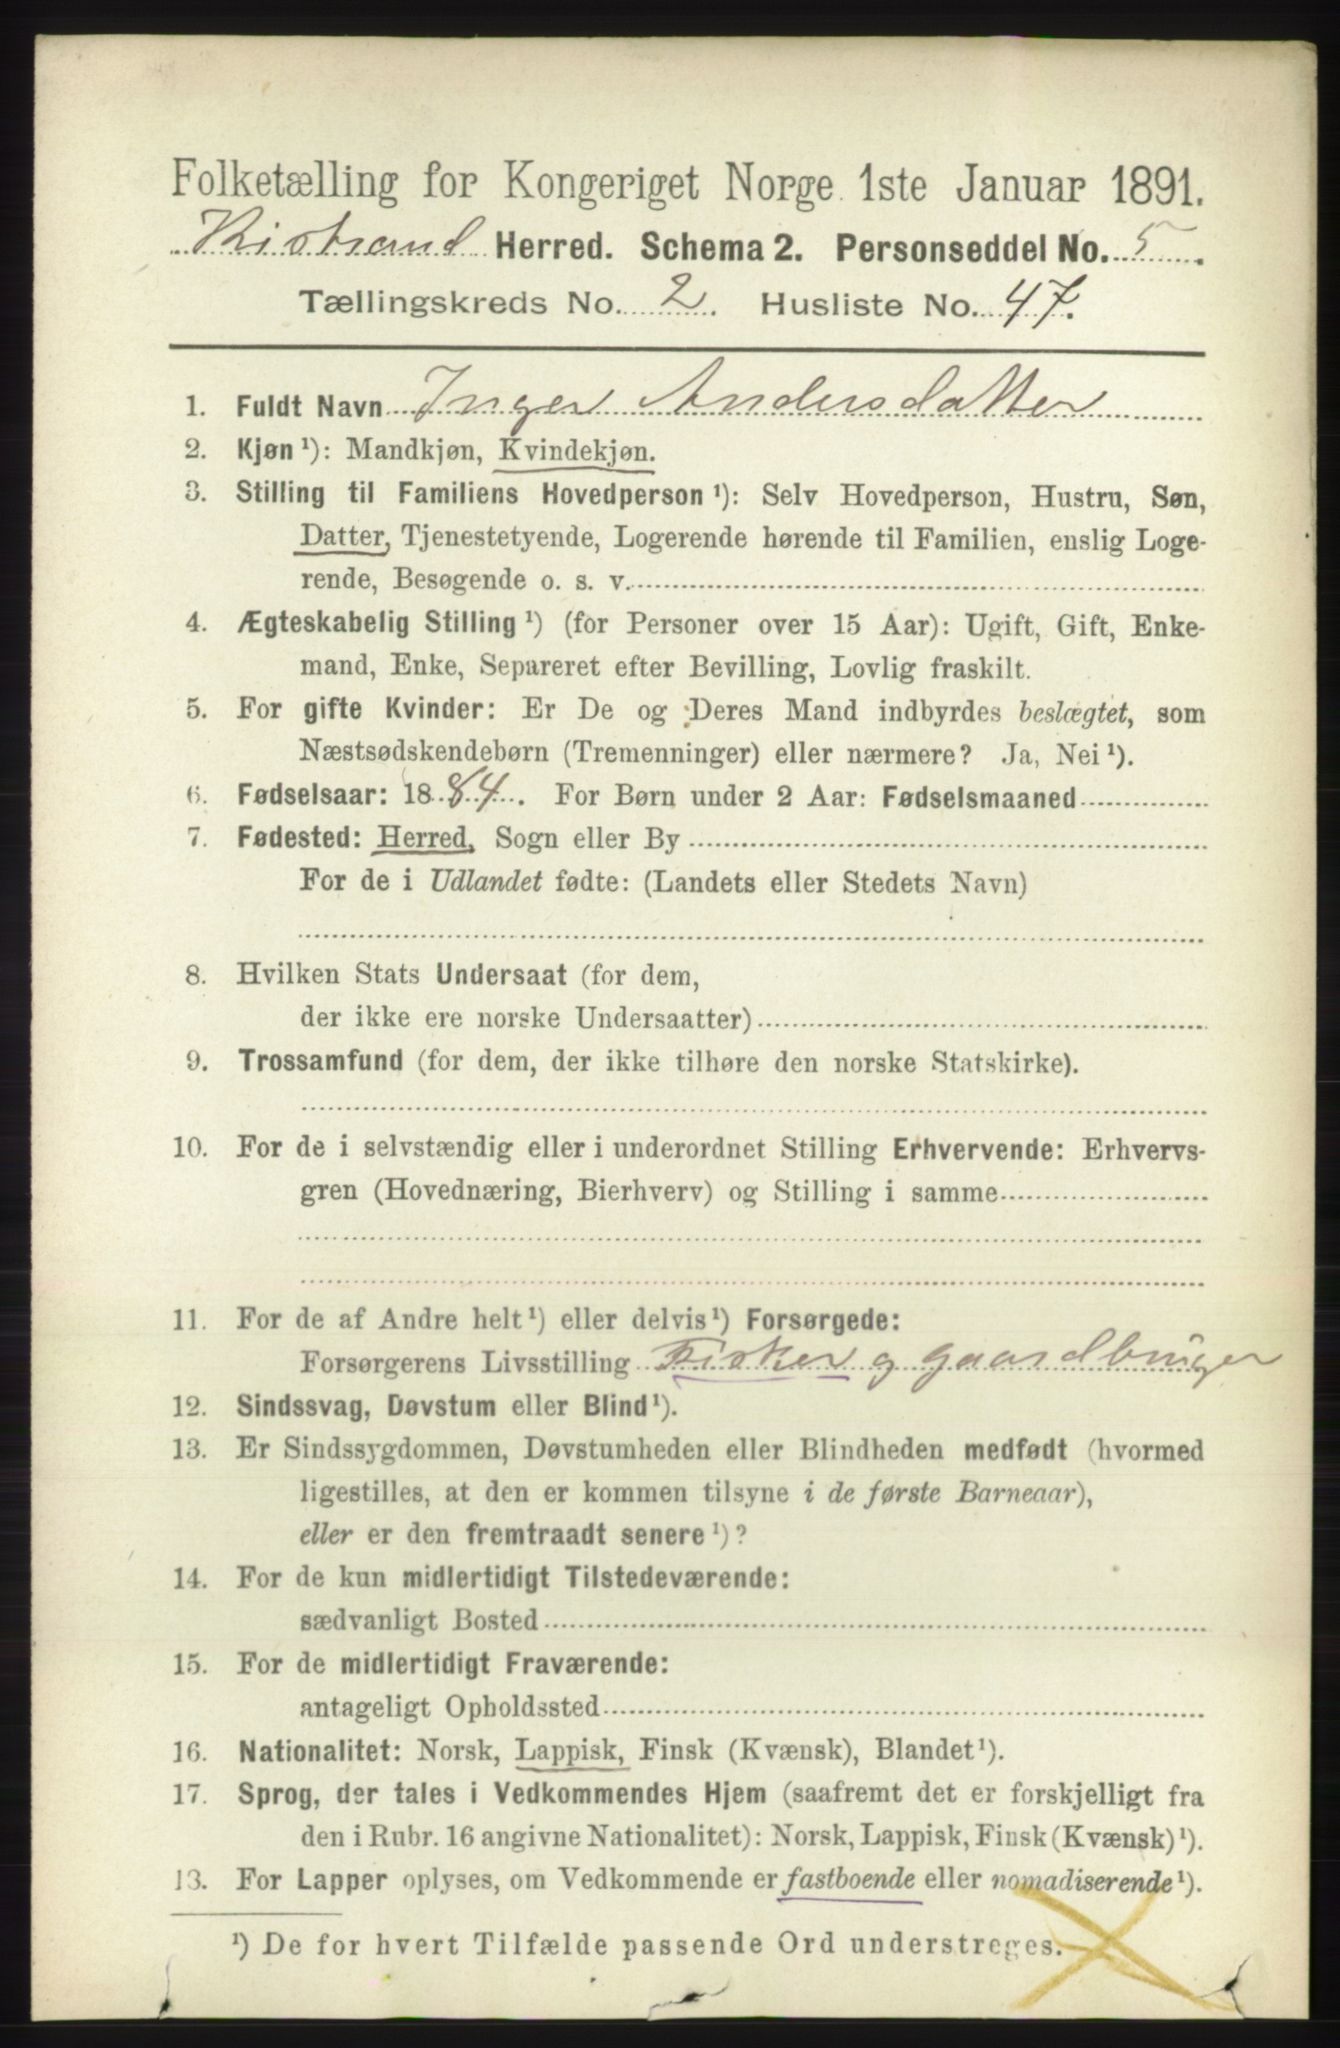 Folketælling for Kongeriget Norge 1ste Januar 1891.
Kistrand Herred. Schema 2. Personseddel No. 5.
Tællingskreds No. 2. Husliste No. 47.
1. Fuldt Navn Inger Andersdatter
2. Kjøn¹): Mandkjøn, Kvindekjøn.
3. Stilling til Familiens Hovedperson¹): Selv Hovedperson, Hustru, Søn,
Datter, Tjenestetyende, Logerende hørende til Familien, enslig Loge-
rende, Besøgende o. s. v.
4. Ægteskabelig Stilling¹) (for Personer over 15 Aar): Ugift, Gift, Enke-
mand, Enke, Separeret efter Bevilling, Lovlig fraskilt.
5. For gifte Kvinder: Er De og Deres Mand indbyrdes beslægtet, som
Næstsødskendebørn (Tremenninger) eller nærmere? Ja, Nei¹).
6. Fødselsaar: 1884. For Børn under 2 Aar: Fødselsmaaned
7. Fødested: Herred, Sogn eller By
For de i Udlandet fødte: (Landets eller Stedets Navn)
8. Hvilken Stats Undersaat (for dem,
der ikke ere norske Undersaatter)
9. Trossamfund (for dem, der ikke tilhøre den norske Statskirke).
10. For de i selvstændig eller i underordnet Stilling Erhvervende: Erhvervs-
gren (Hovednæring, Bierhverv) og Stilling i samme
11. For de af Andre helt¹) eller delvis¹) Forsørgede:
Forsørgerens Livsstilling Fisker og gaardbruger
12. Sindssvag, Døvstum eller Blind¹).
13. Er Sindssygdommen, Døvstumheden eller Blindheden medfødt (hvormed
ligestilles, at den er kommen tilsyne i de første Barneaar),
eller er den fremtraadt senere¹)?
14. For de kun midlertidigt Tilstedeværende:
sædvanligt Bosted
15. For de midlertidigt Fraværende:
antageligt Opholdssted
16. Nationalitet: Norsk, Lappisk, Finsk (Kvænsk), Blandet¹).
17. Sprog, der tales i Vedkommendes Hjem (saafremt det er forskjelligt fra
den i Rubr. 16 angivne Nationalitet): Norsk, Lappisk, Finsk (Kvænsk)¹).
13. For Lapper oplyses, om Vedkommende er fastboende eller nomadiserende¹).
¹) De for hvert Tilfælde passende Ord understreges.